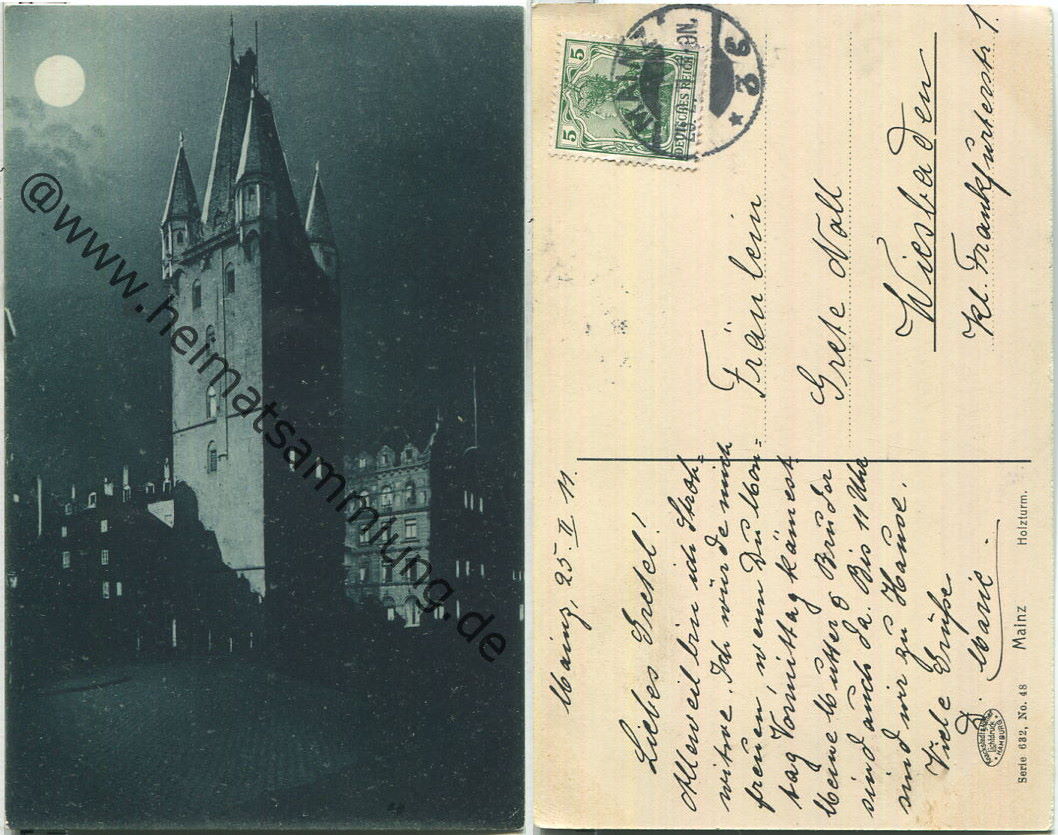 @www.heimatsammlung.de
5
5
DEUTSCHES REICH
MAINZ
* 3 e
Fräulein
Grete Noll
Wiesbaden
kl. Frankfurterstr 1.
Mainz, 25. II 11.
Liebes Gretel!
Alleweil bin ich Stroh=
witwe. Ich würde mich
freuen, wenn Du Mon=
tag Vormittag kämest
Meine Mutter & Bruder
sind auch da. Bis 11 Uhr
sind wir zu Hause.
Viele Grüße
D. Marie.
Knackstedt & Näther
Lichtdruck
HAMBURG
Serie 632, No. 48 Mainz Holzturm.